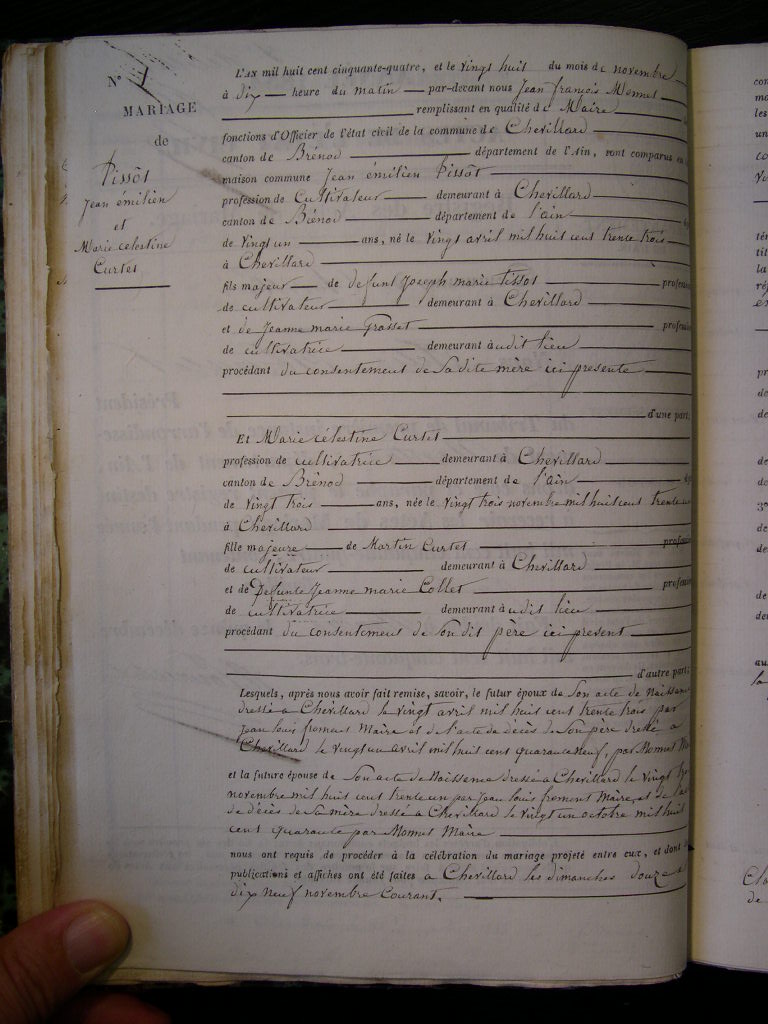 N° 1
MARIAGE
de
Tissot
Jean émilien
et
Marie célestine
Curtet
L'AN mil huit cent cinquante-quatre, et le vingt huit du mois de novembre
à Dix heure du matin par-devant nous Jean françois Monnet
remplissant en qualité de Maire
fonctions d'Officier de l'état civil de la commune de Chevillard
canton de Brénod département de l'Ain, sont comparus en
maison commune Jean émilien Tissot
profession de Cultivateur demeurant à Chevillard
canton de Brénod département de l'ain
de vingt un ans, né le vingt avril mil huit cent trente trois
à Chevillard
fils majeur de defunt Joseph marie tissot profession
de cultivateur demeurant à Chevillard
et de Jeanne marie Grosset profession
de cultivatrice demeurant à udit lieu
procédant du consentement de Sa dite mère ici presente
d'une part;
Et Marie célestine Curtet
profession de cultivatrice demeurant à Chevillard
canton de Brénod département de l'ain
de vingt trois ans, née le vingt trois novembre mil huit cent trente un
à Chevillard
fille majeure de Martin Curtet profession
de cultivateur demeurant à Chevillard
et de Defunte Jeanne marie Collet profession
de cultivatrice demeurant à udit lieu
procédant du consentement de Son dit père ici present
d'autre part;
Lesquels, après nous avoir fait remise, savoir, le futur époux de Son acte de naissance
dressé à Chevillard le vingt avril mil huit cent trente trois par
Jean louis froment Maire et de l'acte de décès de Son père dressé a
Chevillard le vingt un avril mil huit cent quarante neuf, par Monnet
et la future épouse de Son acte de Naissance dressé a Chevillard le vingt
novembre mil huit cent trente un par Jean louis froment Maire, et de
de décès de Sa mère dressé a Chevillard le vingt un octobre mil huit
cent quarante par Monnet Maire
nous ont requis de procéder à la célébration du mariage projeté entre eux, et dont
publications et affiches ont été faites à Chevillard les dimanches douze &
dix neuf novembre Courant.